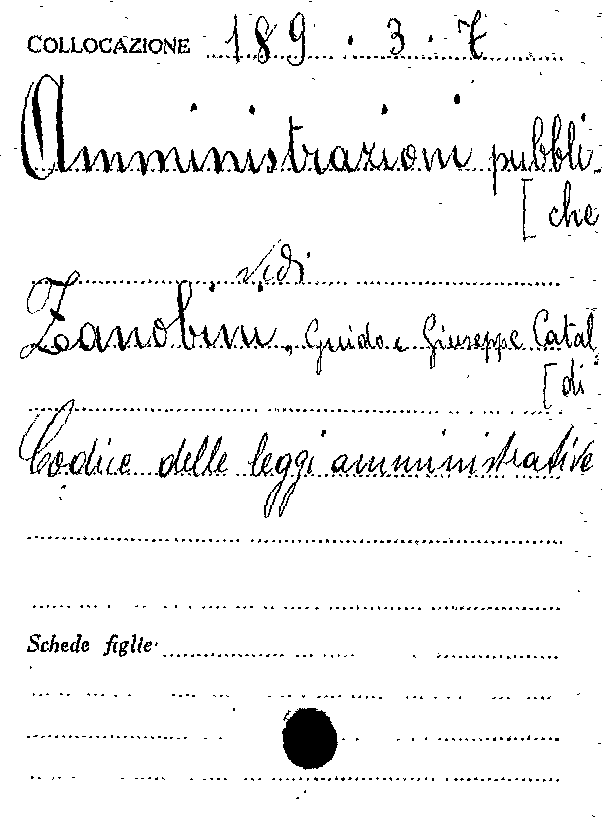 COLLOCAZIONE 189.3.7
Amministrazioni pubbli-
[che
vedi
Zanobini, Guido e Giuseppe Catal,
[di
Codice delle leggi amministrative
Schede figlie